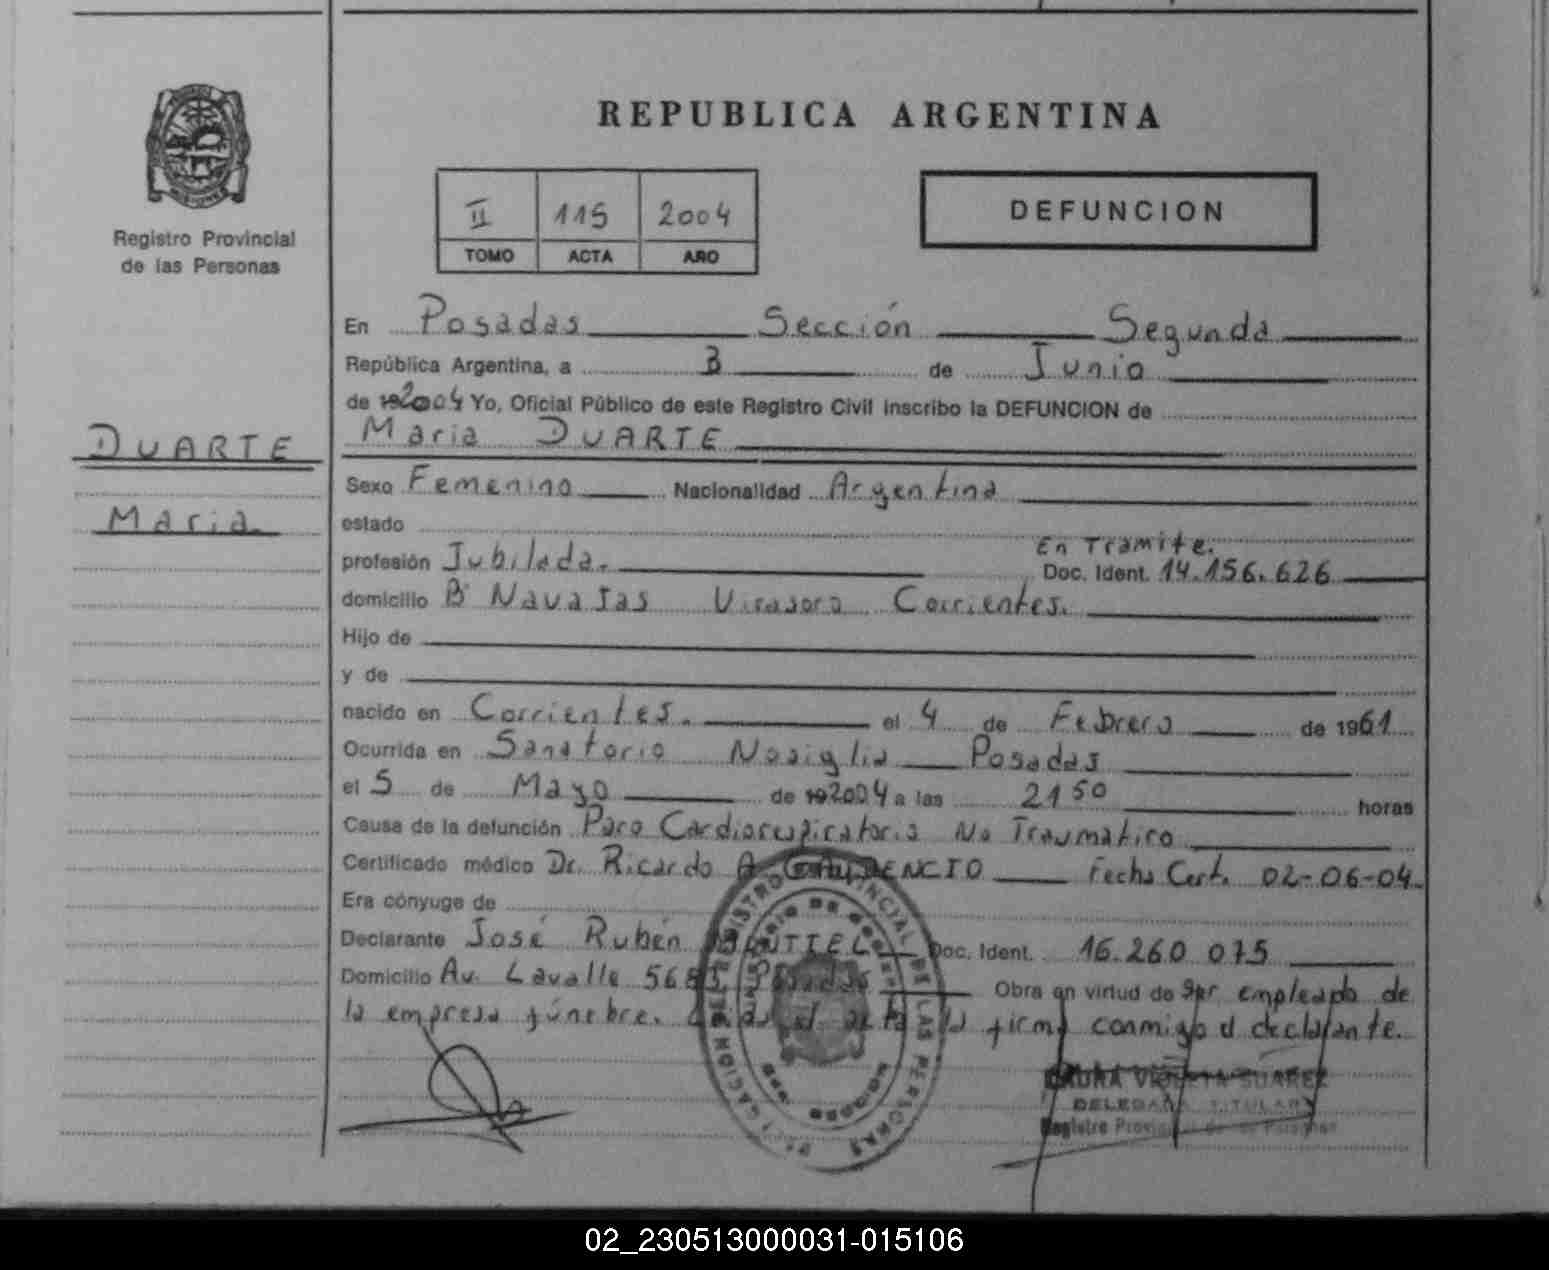 REPUBLICA ARGENTINA
Registro Provincial
de las Personas
II 115 2004
TOMO ACTA AÑO
DEFUNCION
DUARTE
Maria
En Posadas Sección Segunda
República Argentina, a 3 de Junio
de 192004 Yo, Oficial Público de este Registro Civil inscribo la DEFUNCION de
Maria DUARTE
Sexo Femenino Nacionalidad Argentina
estado
En Tramite.
profesión Jubilada. Doc. Ident. 14.156.626
domicilio Bº Navajas Virasoro Corrientes.
Hijo de
y de
nacido en Corrientes. el 4 de Febrero de 1961
Ocurrida en Sanatorio Nosiglia Posadas
el 5 de Mayo de 192004 a las 21 50 horas
Causa de la defunción Paro Cardiorespiratorio No Traumatico
Certificado médico Dr. Ricardo A. GAUDENCIO Fecha Cert. 02-06-04
Era cónyuge de
Declarante José Rubén Doc. Ident. 16.260.075
Domicilio Av. Lavalle Posadas Obra en virtud de ser empleado de
la empresa fúnebre. el acta la firma conmigo el declarante.
REGISTRO PROVINCIAL DE LAS PERSONAS
LAURA VIOLETA SUAREZ
DELEGADA TITULAR
Registro Provincial de las Personas
02_230513000031-015106